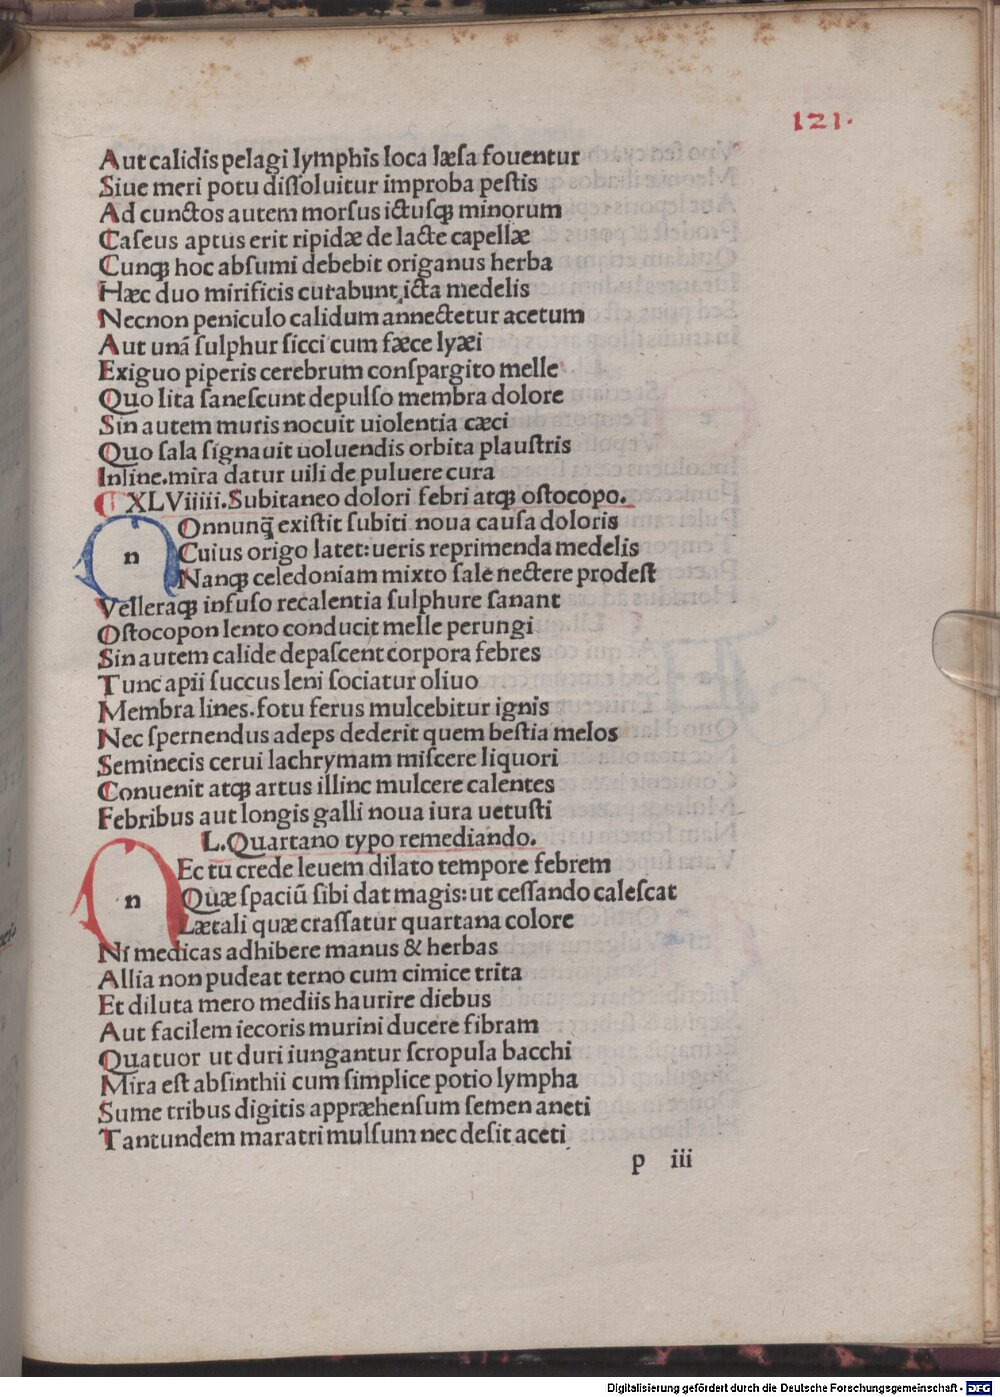 121.
Aut calidis pelagi lymphis loca læsa fouentur
Siue meri potu diſſoluitur improba peſtis
Ad cunctos autem morſus ictuſqꝫ minorum
Caſeus aptus erit ripidæ de lacte capellæ
Cunqꝫ hoc abſumi debebit origanus herba
Hæc duo mirificis curabunt icta medelis
Necnon peniculo calidum annectetur acetum
Aut unā ſulphur ſicci cum fæce lyæi
Exiguo piperis cerebrum conſpargito melle
Quo lita ſaneſcunt depulſo membra dolore
Sin autem muris nocuit uiolentia cæci
Quo ſala ſignauit uoluendis orbita plauſtris
Inline.mira datur uili de puluere cura
¶ XLViiiii.Subitaneo dolori febri atqꝫ oſtocopo.
n Onnunq̄ exiſtit ſubiti noua cauſa doloris
Cuius origo latet:ueris reprimenda medelis
Nanqꝫ celedoniam mixto ſale nectere prodeſt
Velleraqꝫ infuſo recalentia ſulphure ſanant
Oſtocopon lento conducit melle perungi
Sin autem calide depaſcent corpora febres
Tunc apii ſuccus leni ſociatur oliuo
Membra lines.fotu ferus mulcebitur ignis
Nec ſpernendus adeps dederit quem beſtia melos
Seminecis cerui lachrymam miſcere liquori
Conuenit atqꝫ artus illinc mulcere calentes
Febribus aut longis galli noua iura uetuſti
L.Quartano typo remediando.
n Ec tu crede leuem dilato tempore febrem
Quæ ſpaciū ſibi dat magis:ut ceſſando caleſcat
Lætali quæ craſſatur quartana colore
Ni medicas adhibere manus & herbas
Allia non pudeat terno cum cimice trita
Et diluta mero mediis haurire diebus
Aut facilem iecoris murini ducere fibram
Quatuor ut duri iungantur ſcropula bacchi
Mira eſt abſinthii cum ſimplice potio lympha
Sume tribus digitis appræhenſum ſemen aneti
Tantundem maratri mulſum nec deſit aceti
p iii
Digitalisierung gefördert durch die Deutsche Forschungsgemeinschaft - DFG